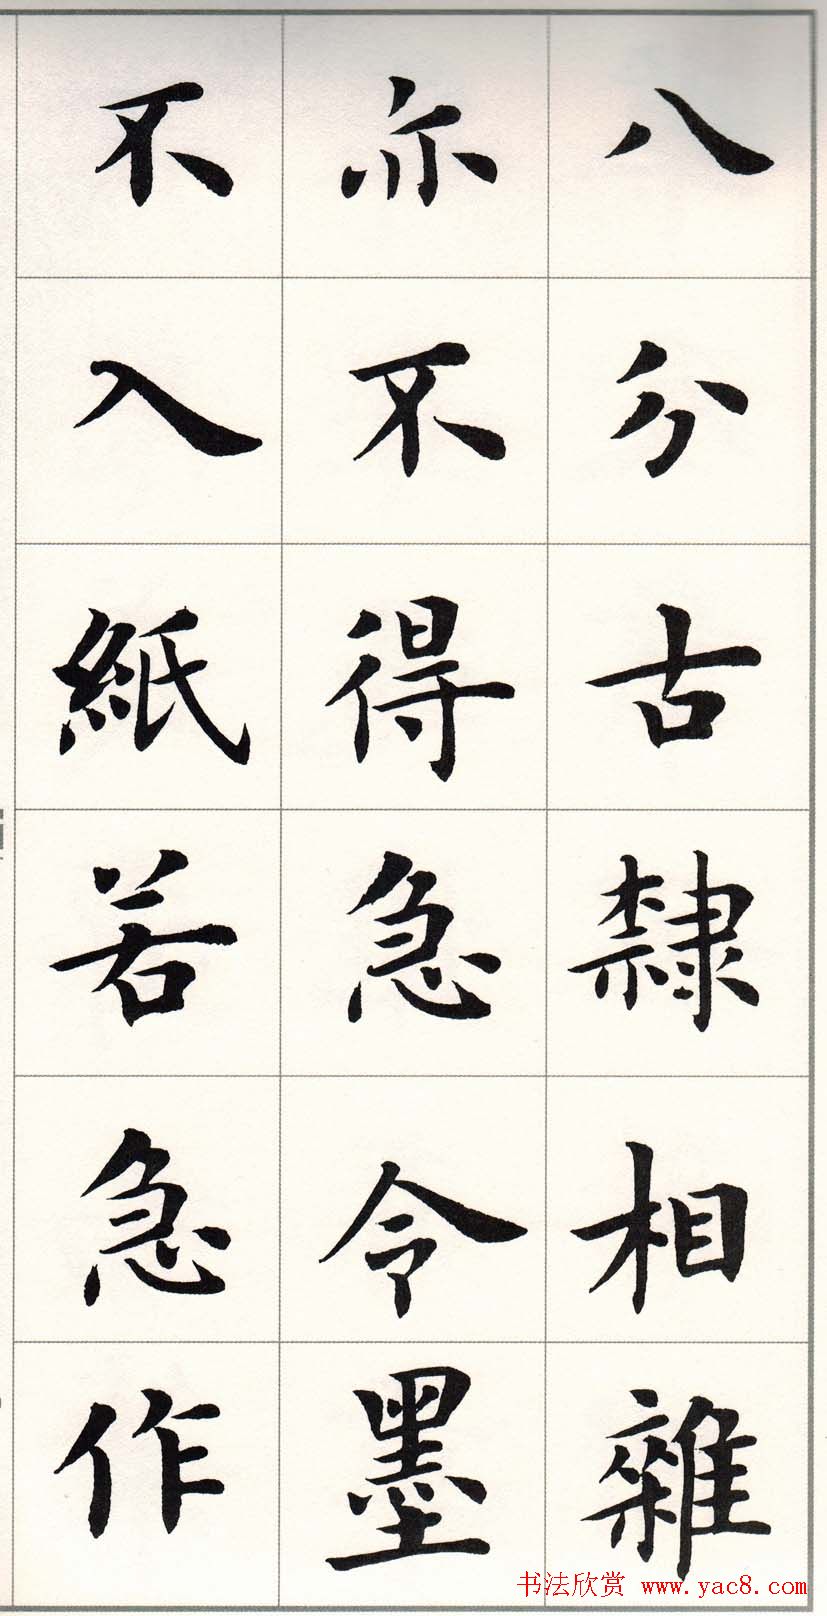 八分古隸相雜
亦不得急令墨
不入紙若急作
书法欣赏 www.yac8.com